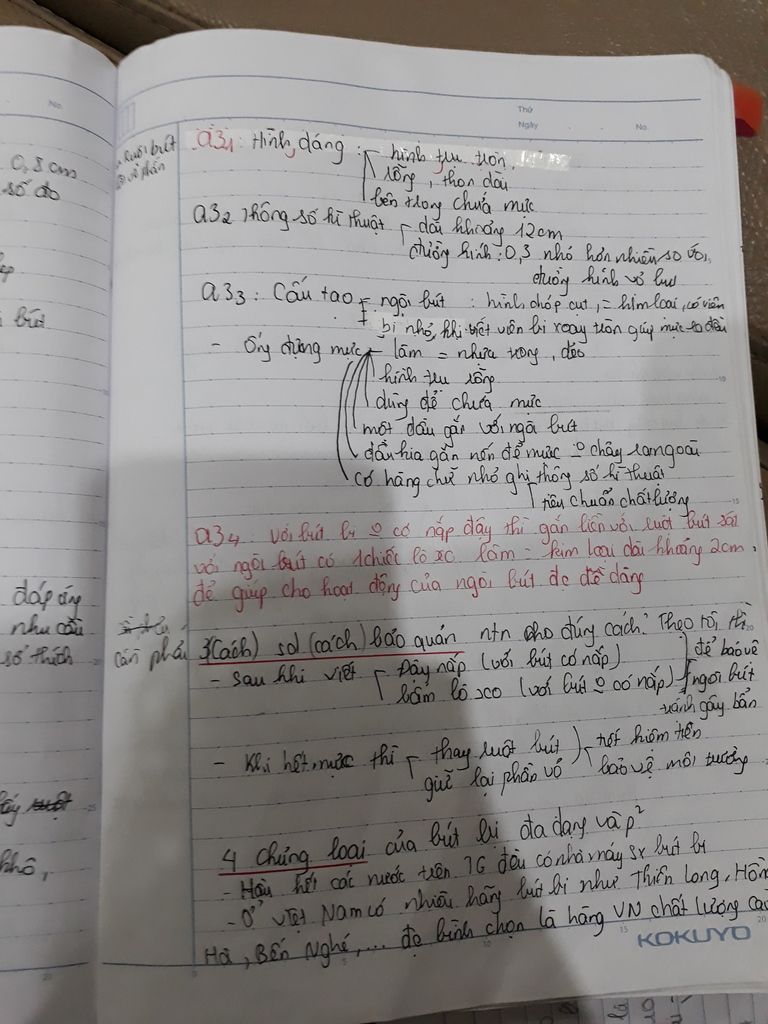 No.
0,8 cm
số đo
đáp ứng
nhu cầu
số thích
khô,
Thứ
Ngày
No.
ruột bút
a3₁: Hình dáng : hình trụ tròn,
rỗng, thon dài
bên trong chứa mực
a3₂ Thông số kĩ thuật dài khoảng 12cm
đường kính: 0,3 nhỏ hơn nhiều so với
đường kính vỏ bút
a3₃: Cấu tạo ngòi bút : hình chóp cụt, = kim loại, có viên
bi nhỏ, khi viết viên bi xoay tròn giúp mực ra đều
- Ống đựng mực làm = nhựa trong, dẻo
hình trụ rỗng
dùng để chứa mực
một đầu gắn với ngòi bút
đầu kia gắn nến để mực o chảy ra ngoài
có hàng chữ nhỏ ghi thông số kĩ thuật
tiêu chuẩn chất lượng
a3₄: với bút bi o có nắp đậy thì gắn liền với ruột bút sát
với ngòi bút có 1 chiếc lò xo làm = kim loại dài khoảng 2cm
để giúp cho hoạt động của ngòi bút đc dễ dàng
cần phải 3(Cách) sd (cách) bảo quản ntn cho đúng cách? Theo tôi thì
- Sau khi viết Đậy nắp (với bút có nắp) để bảo vệ
bấm lò xo (với bút o có nắp) ngòi bút
tránh gây bẩn
- Khi hết mực thì thay ruột bút tiết kiệm tiền
giữ lại phần vỏ bảo vệ môi trường
4 chủng loại của bút bi đa dạng và p²
- Hầu hết các nước trên TG đều có nhà máy sx bút bi
- Ở Việt Nam có nhiều hãng bút bi như Thiên Long, Hồng
Hà, Bến Nghé, ... đc bình chọn là hàng VN chất lượng cao
KOKUYO